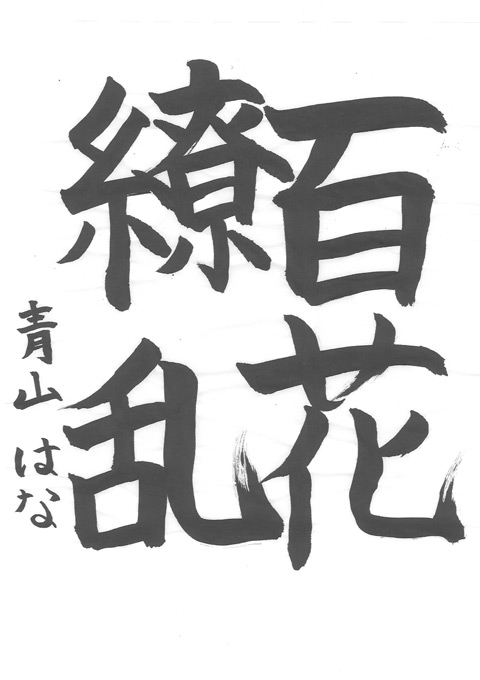 百花
繚乱
青山はな